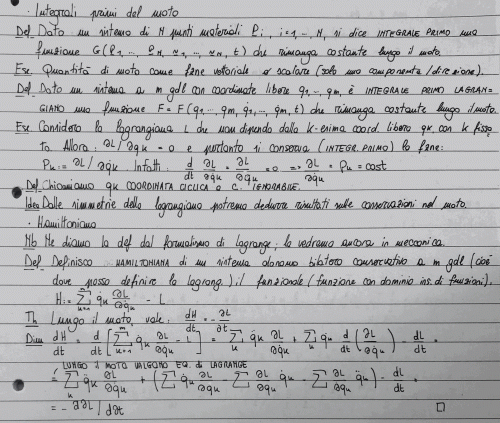 · Integrali primi del moto
Def Dato un sistema di N punti materiali P_i, i=1,...,N, si dice INTEGRALE PRIMO una
funzione G(P_1, ... P_N, v_1, ..., v_N, t) che rimanga costante lungo il moto.
Ese. Quantità di moto come fzne vettoriale o scalare (solo una componente/direzione).
Def Dato un sistema a m gdl con coordinate libere q_1, ... q_m, è INTEGRALE PRIMO LAGRAN-
GIANO una funzione F = F(q_1 ... q_m, q̇_1, ... q̇_m, t) che rimanga costante lungo il moto.
Ese. Considero la lagrangiana L che non dipenda dalla k-esima coord. libera q_k, con k fisso
to. Allora: ∂L/∂q_k = 0 e pertanto si conserva (INTEGR. PRIMO) la fzne:
P_k := ∂L/∂q̇_k. Infatti: d/dt ∂L/∂q̇_k = ∂L/∂q_k = 0 => ∂L/∂q̇_k = P_k = cost
Def Chiamiamo q_k COORDINATA CICLICA o C. IGNORABILE.
Idea Dalle simmetrie della lagrangiana potremo dedurre risultati sulle conservazioni nel moto.
· Hamiltoniana
Nb Ne diamo la def dal formalismo di lagrange; la vedremo ancora in meccanica.
Def Definisco HAMILTONIANA di un sistema olonomo bilatero conservativo a m gdl (cioè
dove posso definire la lagrang.) il funzionale (funzione con dominio ins. di funzioni).
H := ∑_{k=1}^m q̇_k ∂L/∂q̇_k - L
Th Lungo il moto, vale: dH/dt = -∂L/∂t
Dim dH/dt = d/dt [∑_{k=1}^m q̇_k ∂L/∂q̇_k - L] = ∑_k q̈_k ∂L/∂q̇_k + ∑_k q̇_k d/dt (∂L/∂q̇_k) - dL/dt =
LUNGO IL MOTO VALGONO EQ. DI LAGRANGE
= ∑_k q̈_k ∂L/∂q̇_k + (∑ q̇_k ∂L/∂q_k - ∑ ∂L/∂q_k q̇_k - ∑ ∂L/∂q̇_k q̈_k) - ∂L/∂t =
= - ∂L/∂t □